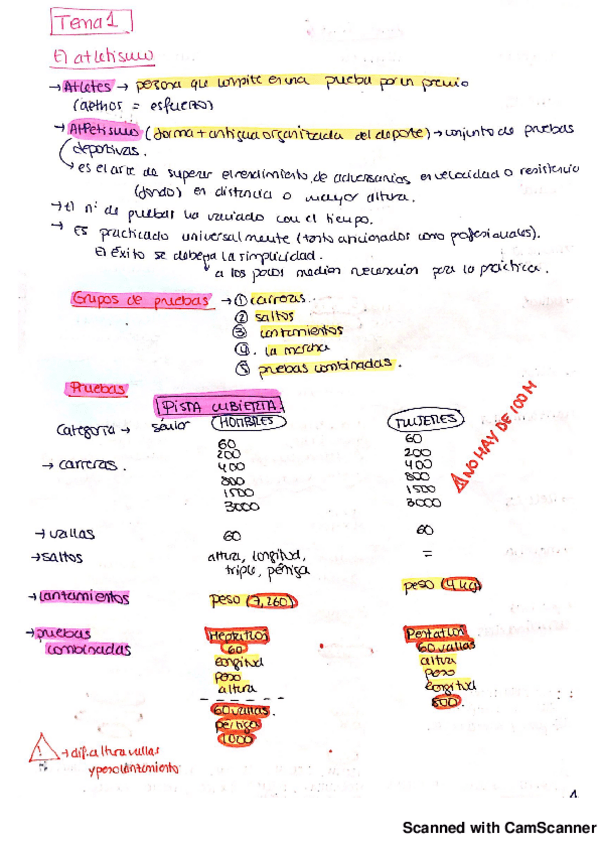 Tema 1
El atletismo
→ Atletes → persona que compite en una prueba por un premio
(aethos = esfuerzo)
→ Atletismo (forma + antigua organizada del deporte) → conjunto de pruebas
deportivas.
↳ es el arte de superar el rendimiento de adversarios en velocidad o resistencia
(fondo) en distancia o mayor altura.
→ El nº de pruebas ha variado con el tiempo.
→ Es practicado universalmente (tanto aficionados como profesionales).
El éxito se debe a la simplicidad.
↳ a los pocos medios necesarios para la práctica.
Grupos de pruebas → ① carreras.
② saltos
③ lanzamientos
④. la marcha
⑤ pruebas combinadas.
Pruebas
PISTA CUBIERTA
Categoría → sénior HOMBRES MUJERES
→ carreras. 60 60
200 200
400 400
800 800
1500 1500
3000 3000
⚠ NO HAY DE 100 M
→ vallas 60 60
→ saltos altura, longitud, =
triple, pértiga
→ lanzamientos peso (7,260) peso (4 kg)
→ pruebas combinadas
Heptatlos Pentatlos
60 60 vallas
longitud altura
peso peso
altura longitud
60 vallas. 800.
pértiga
1000
⚠ → dif. altura vallas
y peso lanzamiento
1
Scanned with CamScanner